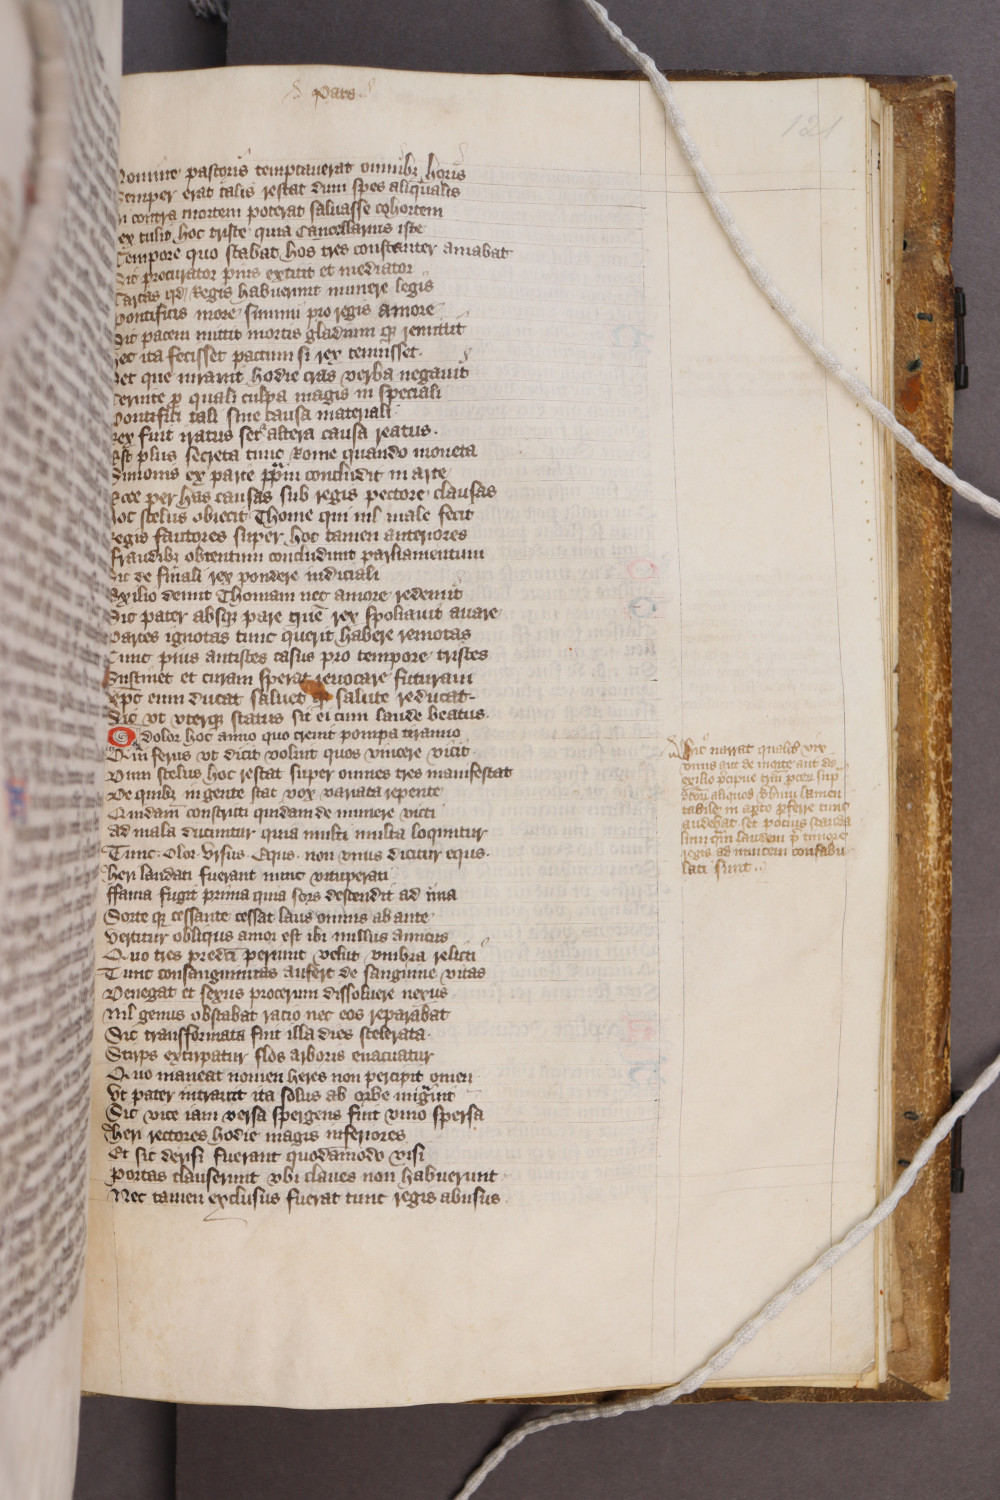 Pars
121
Nomine pastoris temptauerat omnibꝫ horis
Semper erat talis restat dum spes aliqualis
In contra mortem poterat saluasse cohortem
Rex tulit hoc triste quia Cancellarius iste
Tempore quo stabat hos tres constanter amabat
Sic procurator prius extitit et mediator
Cartas qd Regis habuerunt munere legis
Pontificis more summi pro regis amore
Sic pacem mittit mortis gladium qꝫ remittit
Nec ita fecisset pactum si rex tenuisset
Set que iurauit hodie cras verba negauit
Cernite p quali culpa magis in speciali
Pontifici tali sine causa materiali
Rex fuit iratus set altera causa reatus
Est plus secreta tunc Rome quando moneta
Simonis ex parte ppam concludit in arte
Ecce per has causas sub regis pectore clausas
Hoc scelus obiecit Thome qui nil male fecit
Regis fautores super hoc tamen anteriores
ffraudibꝫ obtentum concludunt parliamentum
Sic de finali rex pondere iudiciali
Exilio demit Thomam nec amore redemit
Sic pater absqꝫ pare quē rex spoliauit auare
Partes ignotas tunc querit habere remotas
Tunc pius antistes casus pro tempore tristes
Sustinet et curam sperat reuocare futuram
xpc eum ducat saluet qꝫ salute reducat
Sic vt vterqꝫ status sit ei cum laude beatus
O dolor hoc anno quo creuit pompa tiranno
Qm ferus vt dicit voluit quos vincere vicit
Dum scelus hoc restat super omnes tres manifestat
De quibꝫ in gente stat vox variata repente
Quidam constricti quidam de munere victi
ad mala ducuntur quia multi multa loquntur
Tunc Olor Vrsus Equs non vnus dicitur equs
heri laudati fuerant nunc vituperati
ffama fugit prima quia sors descendit ad ima
Sorte qꝫ cessante cessat laus omnis ab ante
Vertitur obliqus amor est ibi nullus amicus
Quo tres predcī periunt velut vmbra relicti
Tunc consanguinitas aufert de sanguine vitas
Denegat et sexus procerum dissoluere nexus
Nil genus obstabat racio nec eos reparabat
Sic transformata fuit illa dies scelerata
Stirps extirpatur flos arboris euacuatur
Quo maneat nomen heres non percipit omen
Vt pater intrauit ita solus ab orbe migrauit
Sic vice iam versa spergens fuit vino spersa
heri rectores hodie magis inferiores
Et sic derisi fuerant quodāmodo visi
Portas clauserunt vbi claues non habuerunt
Nec tamen exclusus fuerat tunc regis abusus
Sic narrat qualit vix
vnus aut de morte aut de
exilio pcipue
aliquod lamen
tabile in apto pferre tunc
audebat set pocius scanda
lum laudem timore
regis ad inuicem confabu
lati sunt